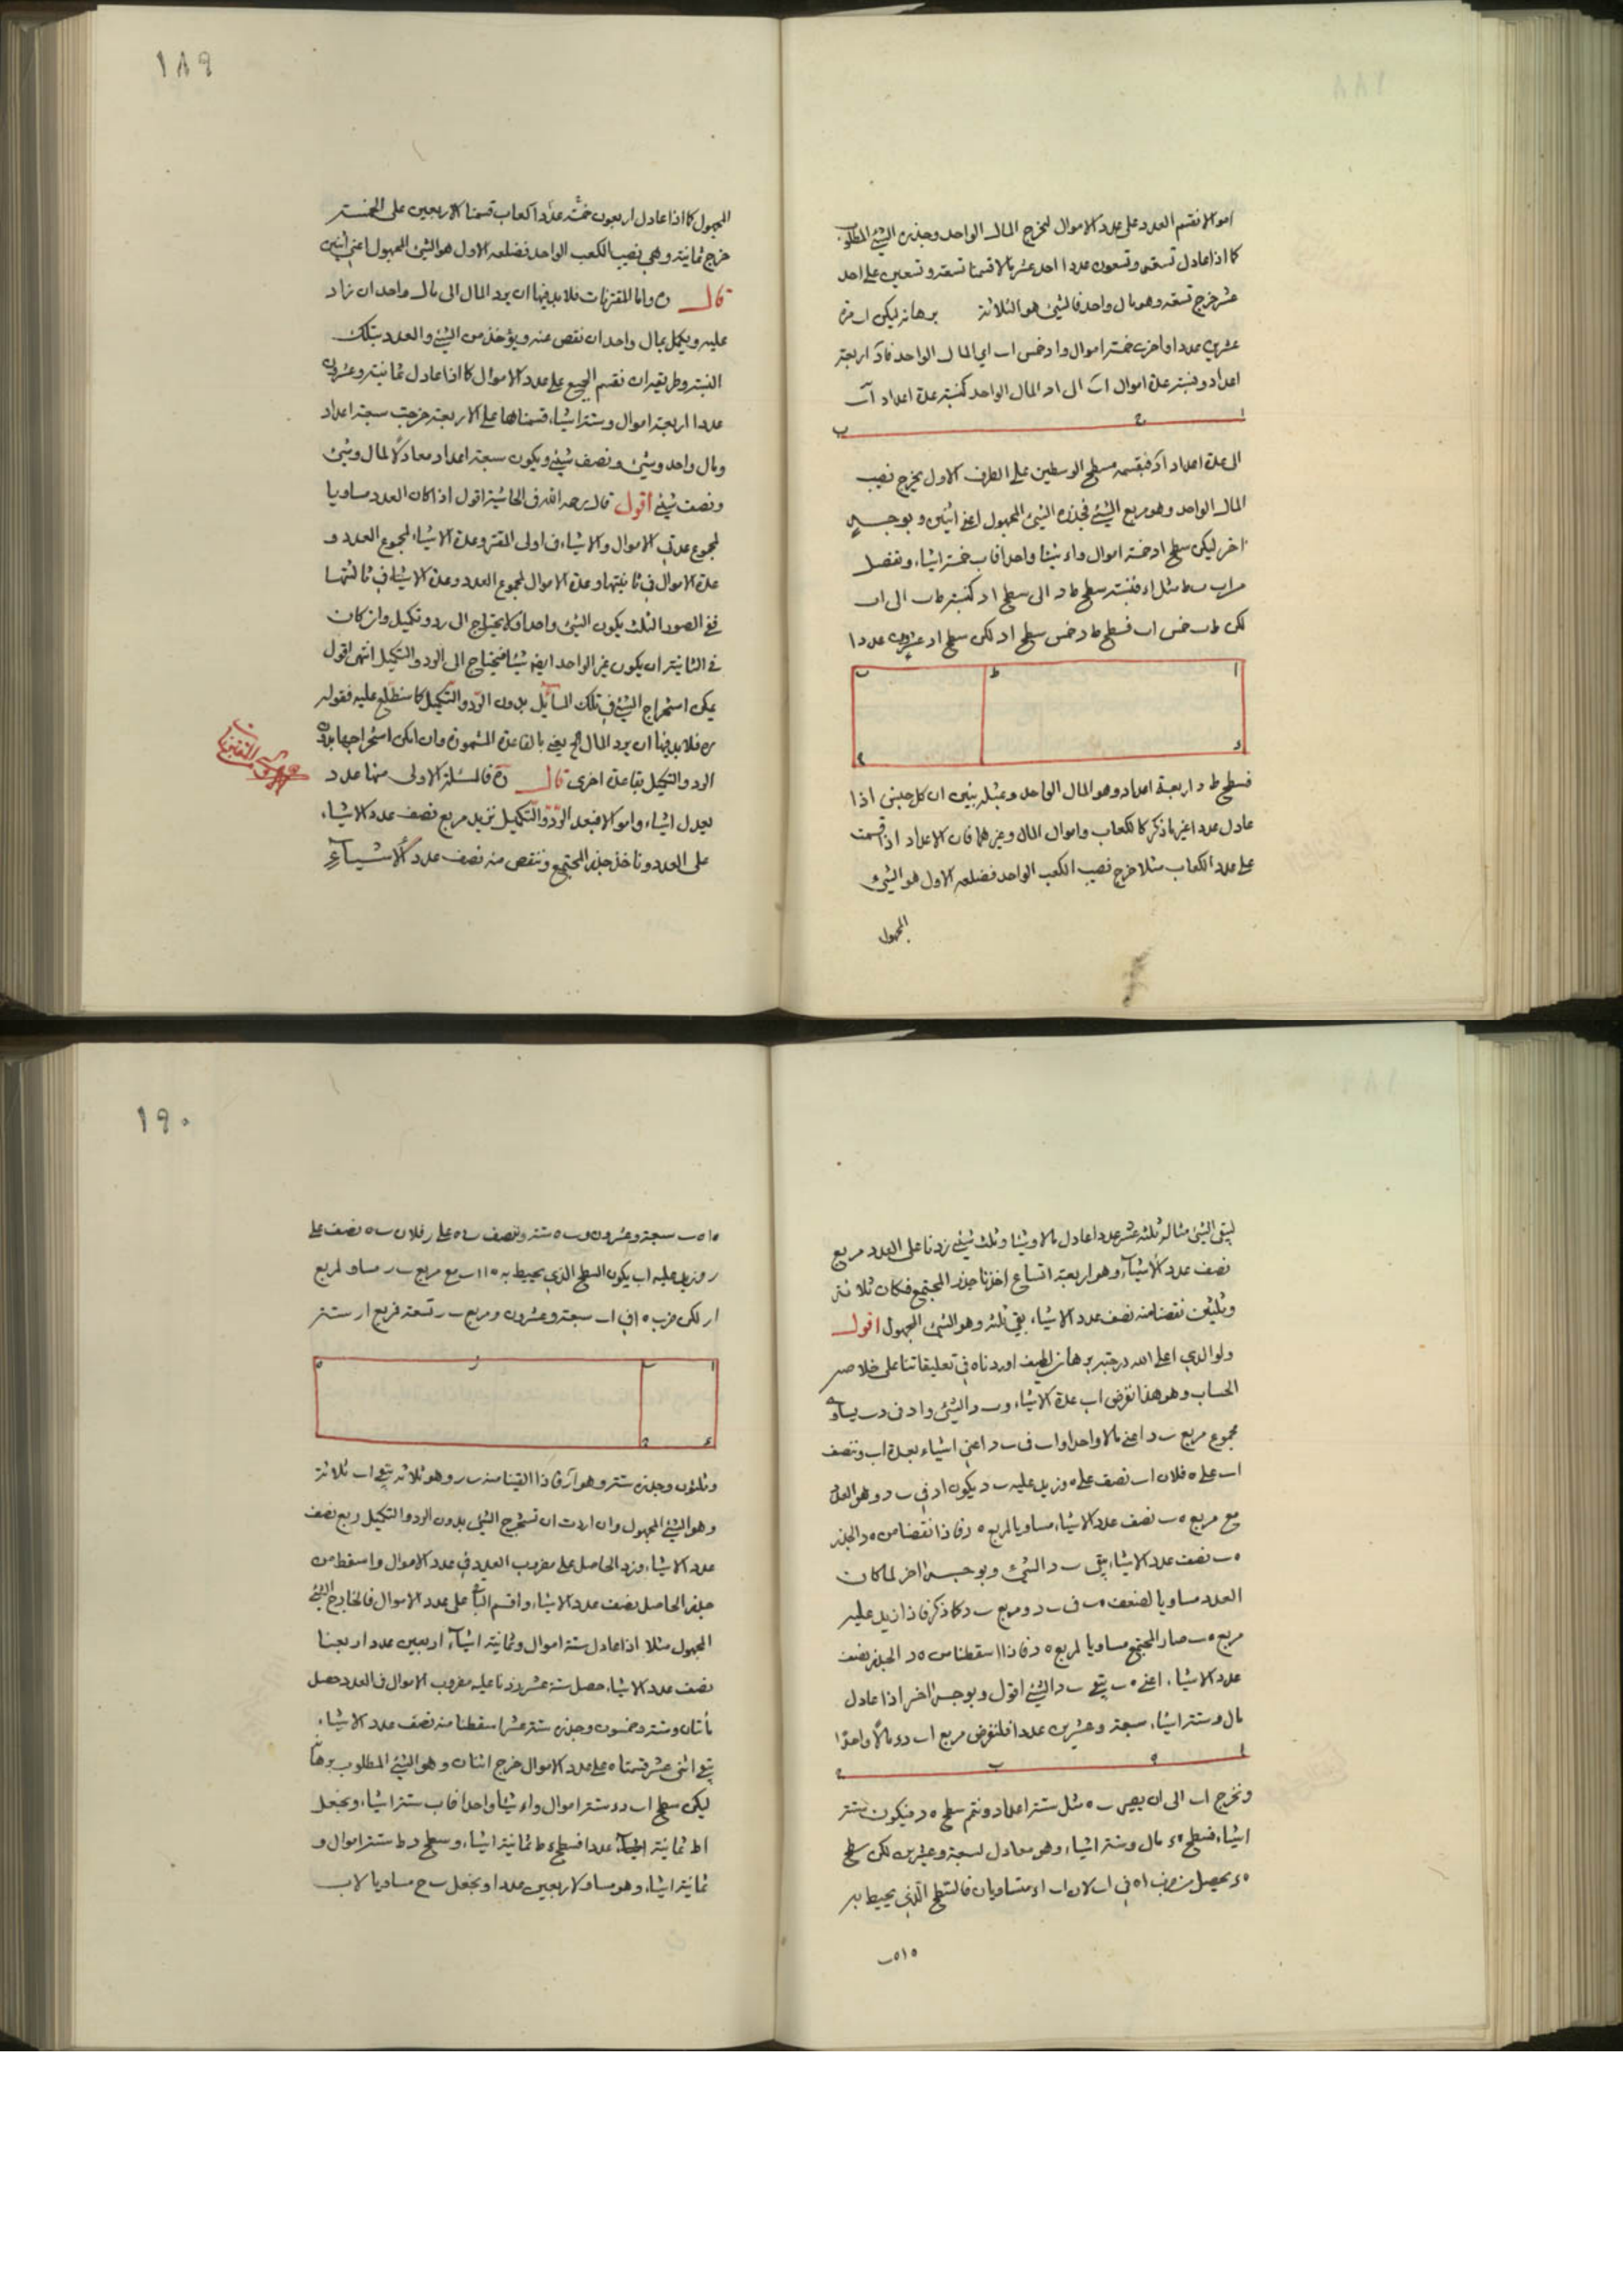 اموالا نقسم العدد على عدد الاموال ليخرج المال الواحد وجذره الشئ المطلوب
كما اذا عادل تسعة وتسعون عددا احد عشر مالا قسمنا تسعة وتسعين على احد
عشر خرج تسعة وهو مال واحد فالشئ هو الثلاثة برهانه ليكن اب مرة
عشرين عددا واخرى خمسة اموال واد خمس اب اي المال الواحد فاد اربعة
اعداد ونسبة عدة اموال اب الى اد المال الواحد كنسبة عدة اعداد اب
ا ح ب
الى عدة اعداد اد فبقسمة مسطح الوسطين على الطرف الاول يخرج نصيب
المال الواحد وهو مربع الشئ فجذره الشئ المجهول اعني اثنين و بوجه
اخر ليكن سطح اد خمسة اموال واء شيئا واحدا فاب خمسة اشياء ونفصل
من اب ب ط مثل اء فنسبة سطح ط د الى سطح اد كنسبة ط ب الى اب
لكن ط ب خمس اب فسطح ط د خمس سطح اد لكن سطح اد عشرون عددا
ا ط ب
فسطح ط د اربعة اعداد وهو المال الواحد وبمثله نبين ان كل جنس اذا
عادل عددا غير ما ذكر كالكعاب واموال المال وغيرهما فان الاعداد اذا قسمت
على عدد الكعاب مثلا خرج نصيب الكعب الواحد فضلعه الاول هو الشئ
المجهول
١٨٩
المجهول كما اذا عادل اربعون خمسة عددا كعاب قسمنا الاربعين على الخمسة
خرج ثمانية وهي نصيب الكعب الواحد فضلعه الاول هو الشئ المجهول اعني اثنين
قال ره واما المقترنات فلا بد فيها ان يرد المال الى مال واحد ان زاد
عليه ويكمل بمال واحد ان نقص عنه ويؤخذ من الشئ والعدد بتلك
النسبة وطريقه ان نقسم الجميع على عدد الاموال كما اذا عادل ثمانية وعشرون
عددا اربعة اموال وستة اشياء قسمناها على الاربعة خرجت سبعة اعداد
ومال واحد وشئ ونصف شئ ويكون سبعة اعداد معادلا لمال وشئ
ونصف شئ اقول قال رحمه الله في الحاشية اقول اذا كان العدد مساويا
لمجموع عدتي الاموال والاشياء في اولى المقترنات وعدة الاشياء لمجموع العدد و
عدة الاموال في ثانيتها وعدة الاموال لمجموع العدد وعدة الاشياء في ثالثتها
ففي الصور الثلث يكون الشئ واحدا ولا يحتاج الى رد وتكميل وان كان
في الثانية ان يكون غير الواحد ايضا شيئا فيحتاج الى الرد والتكميل انتهى اقول
يمكن استخراج الشئ في تلك المسائل بدون الرد والتكميل كما سنطلع عليه فقوله
ره فلا بد فيها ان يرد المال الخ يعني بالقاعدة المشهورة وان امكن استخراجها بدون
الرد والتكميل بقاعدة اخرى قال ره فالمسئلة الاولى منها عدد
يعدل اشياء واموالا فبعد الرد والتكميل نزيد مربع نصف عدد الاشياء
على العدد وناخذ جذر المجتمع وننقص منه نصف عدد الاشياء
ليبقى الشئ مثاله ثلثة عشر عددا عادل مالا وشيئا وثلث شئ زدنا على العدد مربع
نصف عدد الاشياء وهو اربعة اتساع اخذنا جذر المجتمع فكان ثلاثة
وثلثين نقصنا منه نصف عدد الاشياء بقي ثلثة وهو الشئ المجهول اقول
ولوالدي اعلى الله درجته برهان لطيف اوردناه في تعليقاتنا على خلاصة
الحساب وهو هذا نفرض اب عدة الاشياء وب د الشئ واد في د ب يساوي
مجموع مربع ب د اعني مالا واحدا واب في ب د اعني اشياء بعدة اب وننصف
اب على ه فلان اب نصف على ه وزيد عليه ب د يكون اد في ب د وهو العدد
مع مربع ه ب نصف عدد الاشياء مساويا لمربع ه د فاذا نقصنا من ه د الجذر
ه ب نصف عدد الاشياء بقي ب د الشئ وبوجه اخر لما كان
العدد مساويا لضعف ه ب في ب د ومربع ب د كما ذكر فاذا زيد عليه
مربع ه ب صار المجتمع مساويا لمربع ه د فاذا اسقطنا من ه د الجذر نصف
عدد الاشياء اعني ه ب بقي ب د الشئ اقول وبوجه اخر اذا عادل
مال وستة اشياء سبعة وعشرين عددا فلنفرض مربع اب د ء مالا واحدا
ا ه ب د
ونخرج اب الى ان يصير ب ه مثل ستة اعداد ونتم سطح ه د فيكون ستة
اشياء فسطح ه ء مال وستة اشياء وهو معادل لسبعة وعشرين لكن سطح
ه ء يحصل من ضرب اه في اب لان اب اء متساويان فالسطح الذي يحيط به
ه ا ه ب
١٩٠
ه ا ه ب سبعة وعشرون وب ه ستة وننصف ب ه على ر فلان ب ه نصف على
ر وزيد عليه اب يكون السطح الذي يحيط به ه ا اب مع مربع ب ر مساو لمربع
ار لكن ضرب ه ا في اب سبعة وعشرون ومربع ب ر تسعة فمربع ار ستة
ا ب ر ه
وثلثون وجذره ستة وهو ار فاذا القينا منه ب ر وهو ثلاثة بقي اب ثلاثة
وهو الشئ المجهول وان اردت ان تستخرج الشئ بدون الرد والتكميل ربع نصف
عدد الاشياء وزد الحاصل على مضروب العدد في عدد الاموال واسقط من
جذر الحاصل نصف عدد الاشياء واقسم الباقي على عدد الاموال فالخارج الشئ
المجهول مثلا اذا عادل ستة اموال وثمانية اشياء اربعين عددا ربعنا
نصف عدد الاشياء حصل ستة عشر زدنا عليه مضروب الاموال في العدد حصل
مأتان وستة وخمسون وجذره ستة عشر اسقطنا منه نصف عدد الاشياء
بقي اثنى عشر قسمناه على عدد الاموال خرج اثنان وهو الشئ المطلوب برهانه
ليكن سطح اب د ء ستة اموال واء شيئا واحدا فاب ستة اشياء ونجعل
اط ثمانية عددا فسطح ء ط ثمانية اشياء وسطح د ط ستة اموال و
ثمانية اشياء وهو مساو لاربعين عددا ونجعل ب ح مساويا لاب